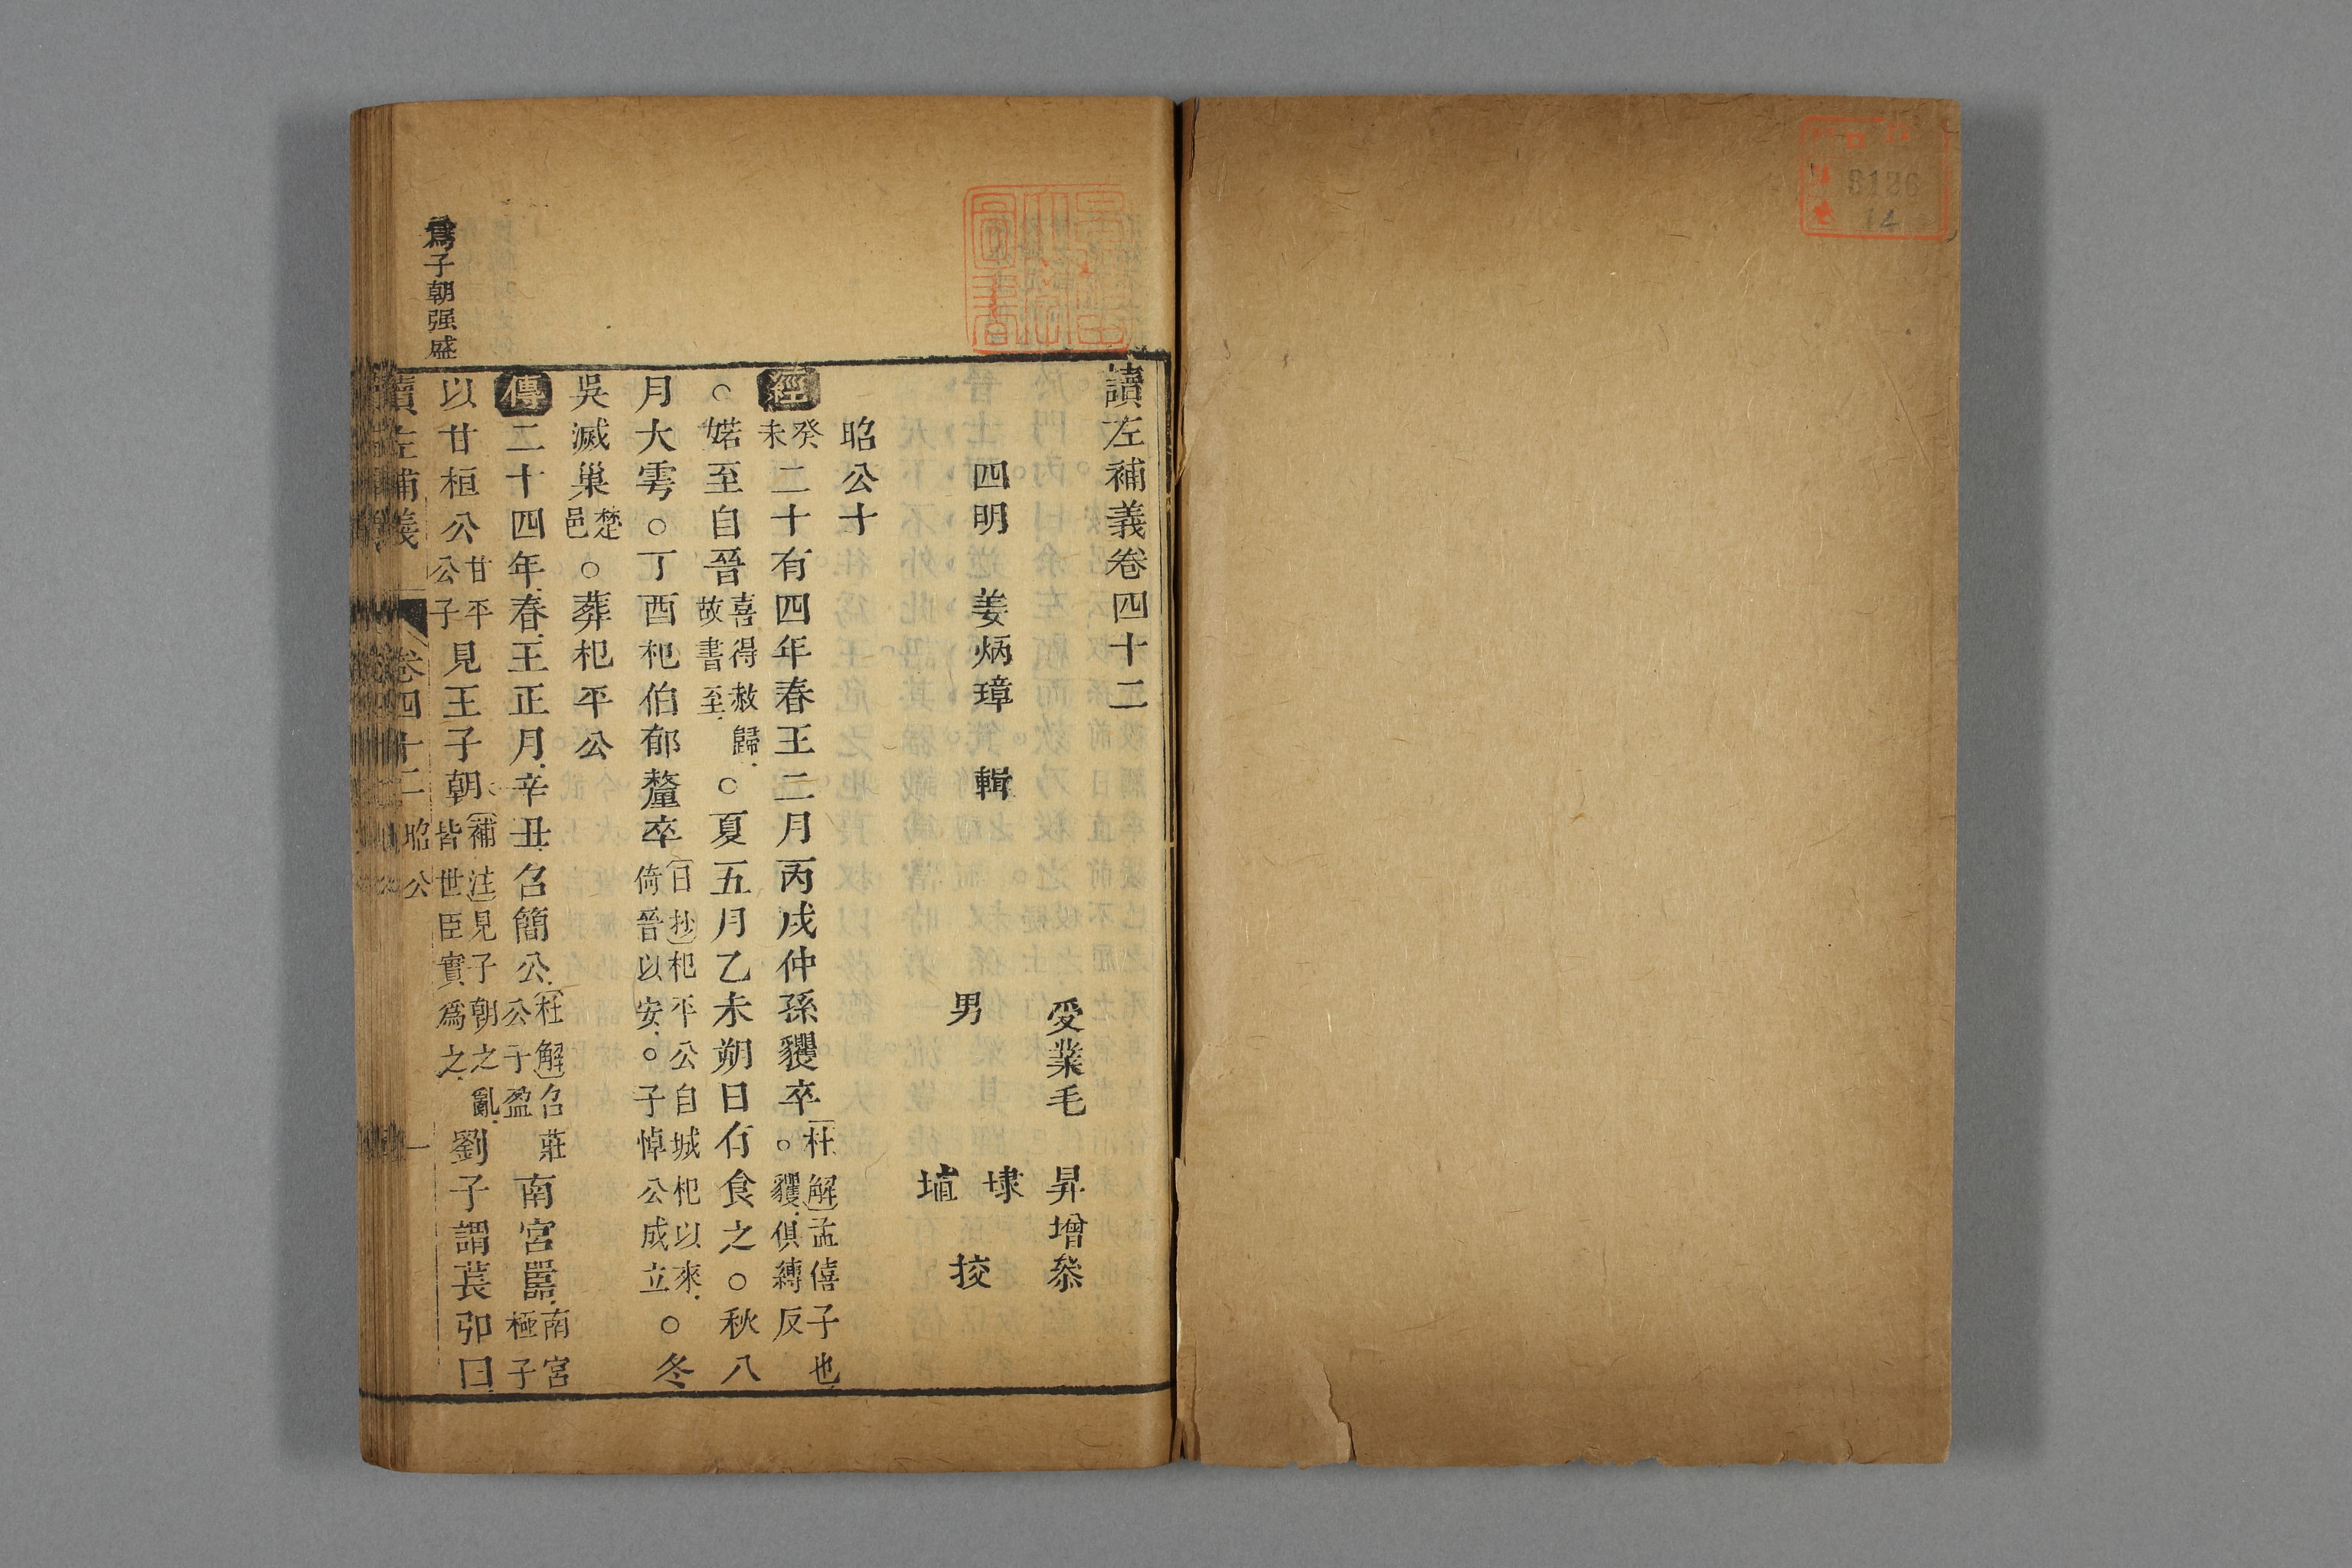 8186
14
讀左補義卷四十二
受業毛昇增叅
四明姜炳璋輯
男埭挍
埴
昭公十
經癸未二十有四年春王二月丙戌仲孫貜卒杜解孟僖子也貜俱縛反
○婼至自晉喜得赦歸故書至○夏五月乙未朔日有食之○秋八
月大雩○丁酉杞伯郁釐卒日抄杞平公自城杞以來倚晉以安○子悼公成立○冬
吳滅巢楚邑○葬杞平公
傳二十四年春王正月辛丑召簡公杜解召莊公子盈南宮嚚南宮極子
以甘桓公甘平公子見王子朝補注見子朝之亂皆世臣實為之劉子謂萇弘曰
為子朝强盛
讀左補義 卷四十二 昭公 一